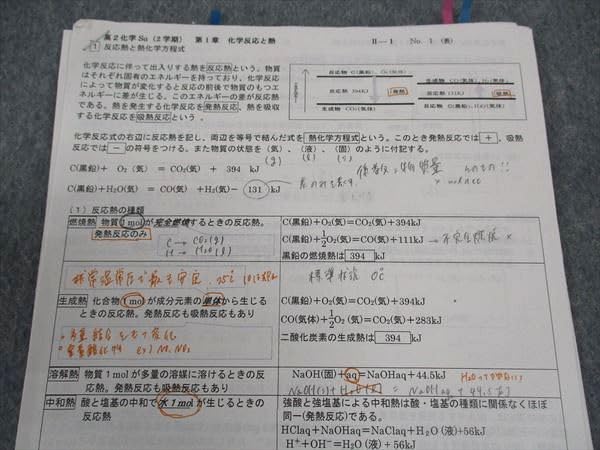 高2化学Sα(2学期) 第1章 化学反応と熱 Ⅱ-1 No.1(表)
1 反応熱と熱化学方程式
化学反応に伴って出入りする熱を反応熱という。物質
はそれぞれ固有のエネルギーを持っており、化学反応
によって物質が変化すると反応の前後で物質のもつエ
ネルギーに差が生じる。このエネルギーの差が反応熱
である。熱を発生する化学反応を発熱反応、熱を吸収
する化学反応を吸熱反応という。
反応物 C(黒鉛), O₂(気体)
反応熱 394kJ 発熱
生成物 CO₂(気体)
生成物 CO(気体), H₂(気体)
反応熱 131kJ 吸熱
反応物 C(黒鉛), H₂O(気体)
化学反応式の右辺に反応熱を記し、両辺を等号で結んだ式を熱化学方程式という。このとき発熱反応では + 、吸熱
反応では - の符号をつける。また物質の状態を(気)、(液)、(固)のように付記する。
(g) (l) (s)
C(黒鉛)+ O₂(気) = CO₂(気) + 394 kJ
係数=物質量
C(黒鉛)+H₂O(気) = CO(気) +H₂(気)- 131 kJ
(1)反応熱の種類
燃焼熱 物質1molが完全燃焼するときの反応熱。
発熱反応のみ
C → CO₂(g)
H → H₂O(l)
C(黒鉛)+O₂(気)=CO₂(気)+394kJ
C(黒鉛)+1/2O₂(気)=CO(気)+111kJ → 不完全燃焼 ×
黒鉛の燃焼熱は 394 kJ
標準状態 0℃
生成熱 化合物1molが成分元素の単体から生じる
ときの反応熱。発熱反応も吸熱反応もあり
C(黒鉛)+O₂(気)=CO₂(気)+394kJ
CO(気体)+1/2O₂(気)=CO₂(気)+283kJ
二酸化炭素の生成熱は 394 kJ
溶解熱 物質1molが多量の溶媒に溶けるときの反応
熱。発熱反応も吸熱反応もあり
NaOH(固)+aq=NaOHaq+44.5kJ
中和熱 酸と塩基の中和で水1molが生じるときの
反応熱
強酸と強塩基による中和熱は酸・塩基の種類に関係なくほぼ
同一(発熱反応)である。
HClaq+NaOHaq=NaClaq+H₂O(液)+56kJ
H⁺+OH⁻=H₂O(液)+56kJ